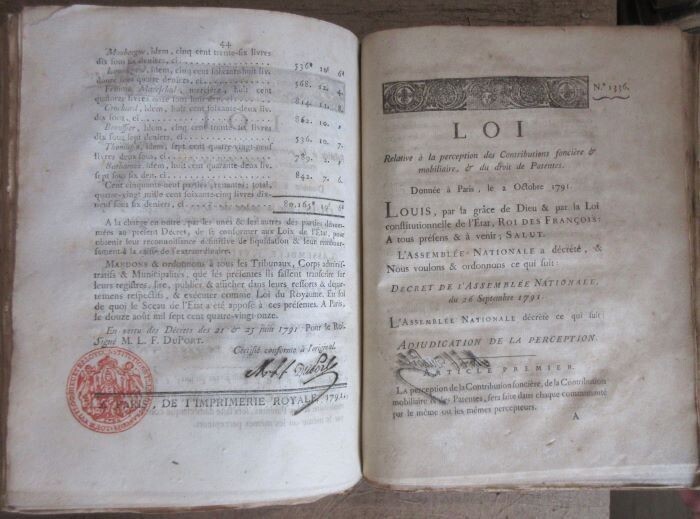 44
Maubergue, idem, cinq cent trente-six livres
dix sous six deniers, ci 536. 10. 6.
idem, cinq cent soixante-huit liv.
douze sous quatre deniers, ci 568. 12. 4.
Femme Mareschal, nourrice, huit cent
quatorze livres onze sous huit den. ci 814. 11. 8.
Crochard, idem, huit cent soixante-deux liv.
dix sous, ci 862. 10.
idem, cinq cent trente-six livres
dix sous sept deniers, ci 536. 10. 7.
idem, sept cent quatre-vingt-neuf
livres deux sous, ci 789. 2.
idem, huit cent quarante-deux liv.
sept sous six den. ci 842. 7. 6.
Cent cinquante-neuf parties prenantes; total,
quatre-vingt mille cent soixante-cinq livres dix-
neuf sous six deniers, ci 80,165. 19. 6.
A la charge en outre, par les unes & les autres des parties dénom-
mées au présent Décret, de se conformer aux Loix de l'État, pour
obtenir leur reconnoissance définitive de liquidation & leur rembourse-
ment à la caisse de l'extraordinaire.
MANDONS & ordonnons à tous les Tribunaux, Corps adminis-
tratifs & Municipalités, que les présentes ils fassent transcrire sur
leurs registres, lire, publier & afficher dans leurs ressorts & dépar-
temens respectifs, & exécuter comme Loi du Royaume. En foi
de quoi le Sceau de l'État a été apposé à ces présentes. A Paris,
le douze août mil sept cent quatre-vingt-onze.
En vertu des Décrets des 21 & 25 juin 1791. Pour le Roi.
Signé M. L. F. DUPORT.
Certifié conforme à l'original.
A PARIS, DE L'IMPRIMERIE ROYALE, 1791.
N.° 1336.
LOI
Relative à la perception des Contributions foncière &
mobiliaire, & du droit de Patentes.
Donnée à Paris, le 2 Octobre 1791.
LOUIS, par la grâce de Dieu & par la Loi
constitutionnelle de l'État, ROI DES FRANÇOIS:
A tous présens & à venir; SALUT.
L'ASSEMBLÉE NATIONALE a décrété, &
Nous voulons & ordonnons ce qui suit:
DÉCRET DE L'ASSEMBLÉE NATIONALE,
du 26 Septembre 1791.
L'ASSEMBLÉE NATIONALE décrète ce qui suit:
ADJUDICATION DE LA PERCEPTION.
ARTICLE PREMIER.
La perception de la Contribution foncière, de la Contribution
mobiliaire & des Patentes, sera faite dans chaque communauté
par le même ou les mêmes percepteurs.
A